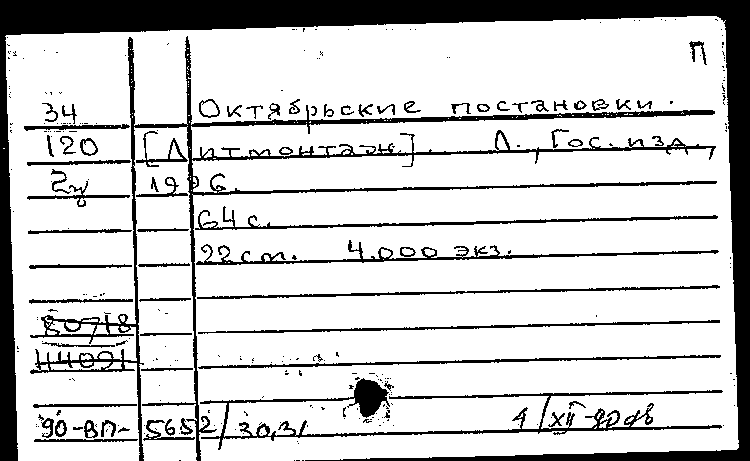 П
34 Октябрьские постановки.
120 [Литмонтаж]. Л., Гос. изд.,
1926.
64 с.
22 cm. 4.000 экз.
80718
44091
90-ВП- 5652/30,31